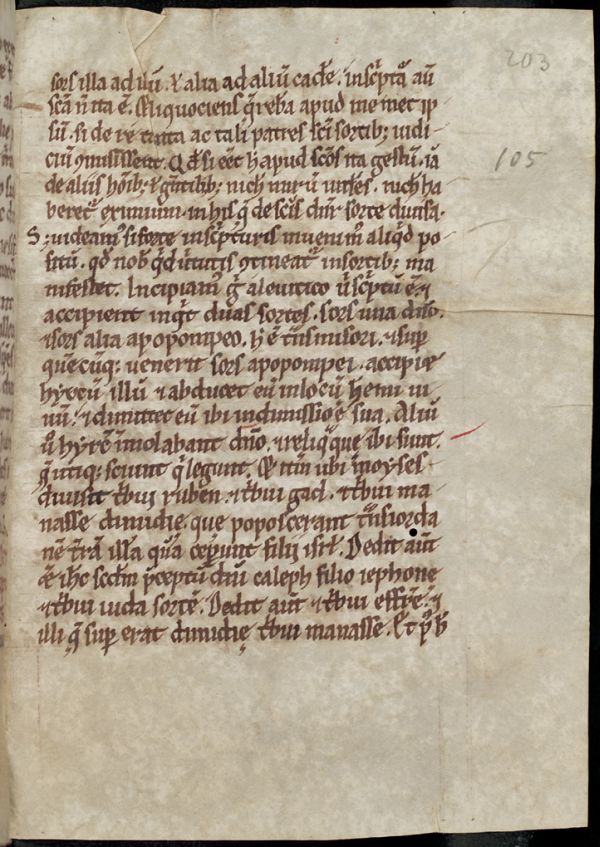 203
105
sors illa ad illū. ł alia ad aliū cadēˀ. in sc̄ptˢ aū
sc̄a n̄ ita ē. Aliquociens q̄reba apud memet ip
sū. si de re tanta ac tali patres sc̄i sortib; iudi
ciū ꝯmisissent. Qđ si eēt h apud sc̄os ita gestū. iā
de alijs hōib; ł gn̄tilib; nich mirū
beretˢ eximium. in his q̄ de sc̄is dn̄r sorte diuisa.
S; uideamꝰ si forte in sc̄pturis inuenimꝰ aliqđ po
situ. qđ nob qđ utilitatis ꝯtineatˢ in sortib; ma
nifestet. Incipiamꝰ g̊ a leuitico ū sc̄ptū ē. ⁊
accipient inqt duas sortes. sors una dn̄o.
⁊ sors alia apopompeo. h ē tˢnsmisori. ⁊ sup
quēcūq; uenerit sors apopompei. accipiˀ
hyrcū illū ⁊ abducet eū in locū heremi ui
uū. ⁊ dimittet eū ibi dimissio ē sua. Aliū
ů hyrcū īmolabant dn̄o. ⁊ reliq̄ que ibi sunt.
q̄ utiq; sciunt q̄ legunt. Et itm̄ ubi moyses
diuisit tˢbui ruben. ⁊ tˢbui gad. ⁊ tˢbui ma
nasse dimidię. que poposcerant tˢns iorda
nē tr̄a illā quā cepunt filij isrl. Dedit aūt
ihc scdm p̄ceptū dn̄i caleph filio iephone
⁊ tˢbui iuda sortē. Dedit aūt ⁊ tˢbui effrē. ⁊
illi q̨ sup erat dimidię tˢbui manasse. Et pˀ h̄